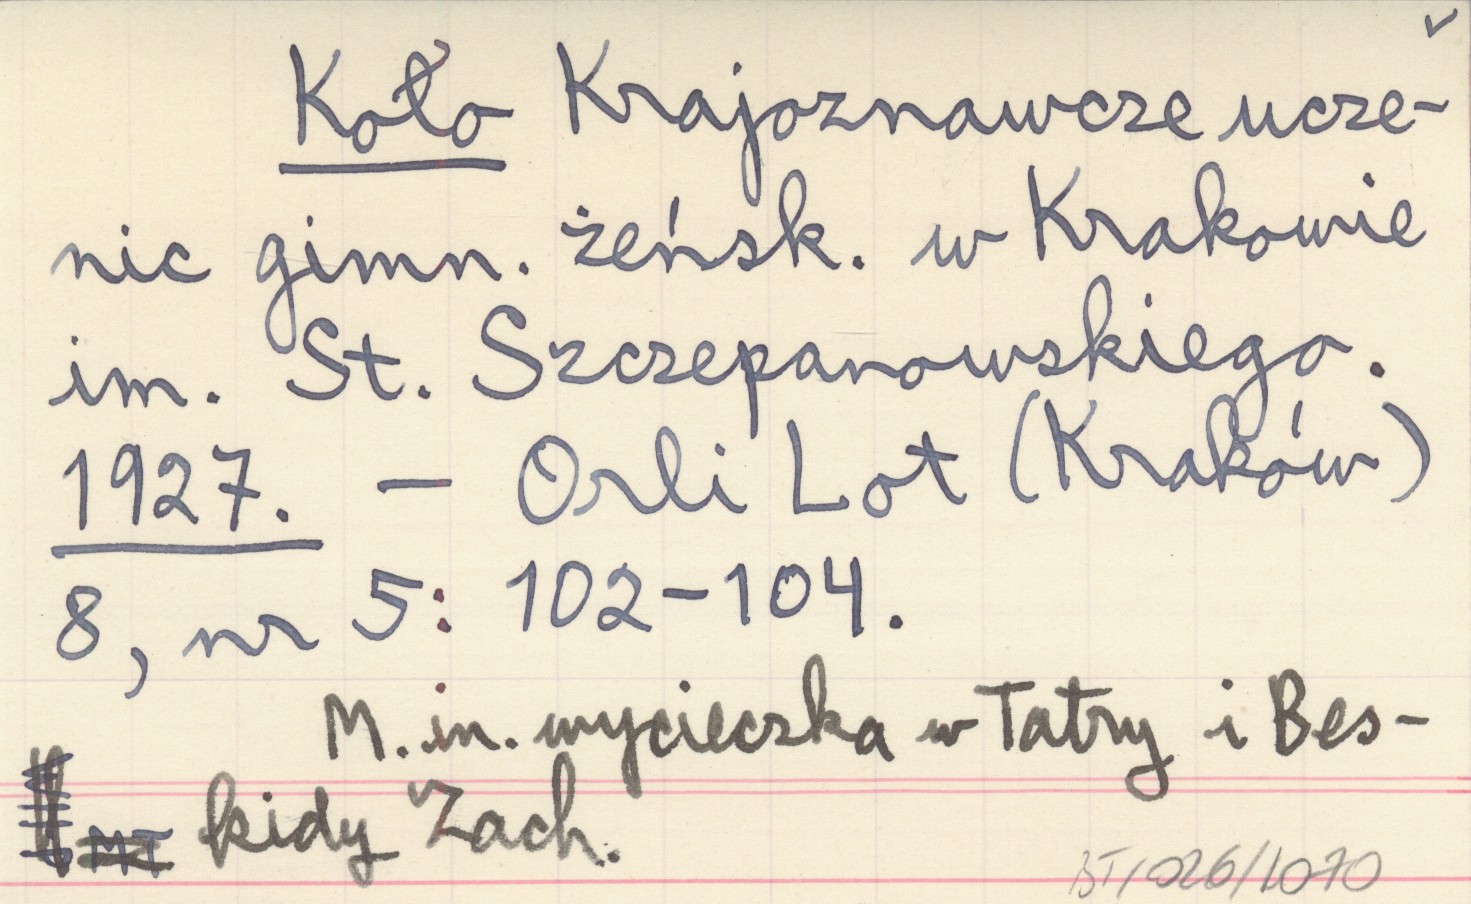 Koło Krajoznawcze ucze-
nic gimn. żeńsk. w Krakowie
im. St. Szczepanowskiego.
1927. — Orli Lot (Kraków)
8, nr 5: 102-104.
M. in. wycieczka w Tatry i Bes-
kidy Zach.
BT/026/1070